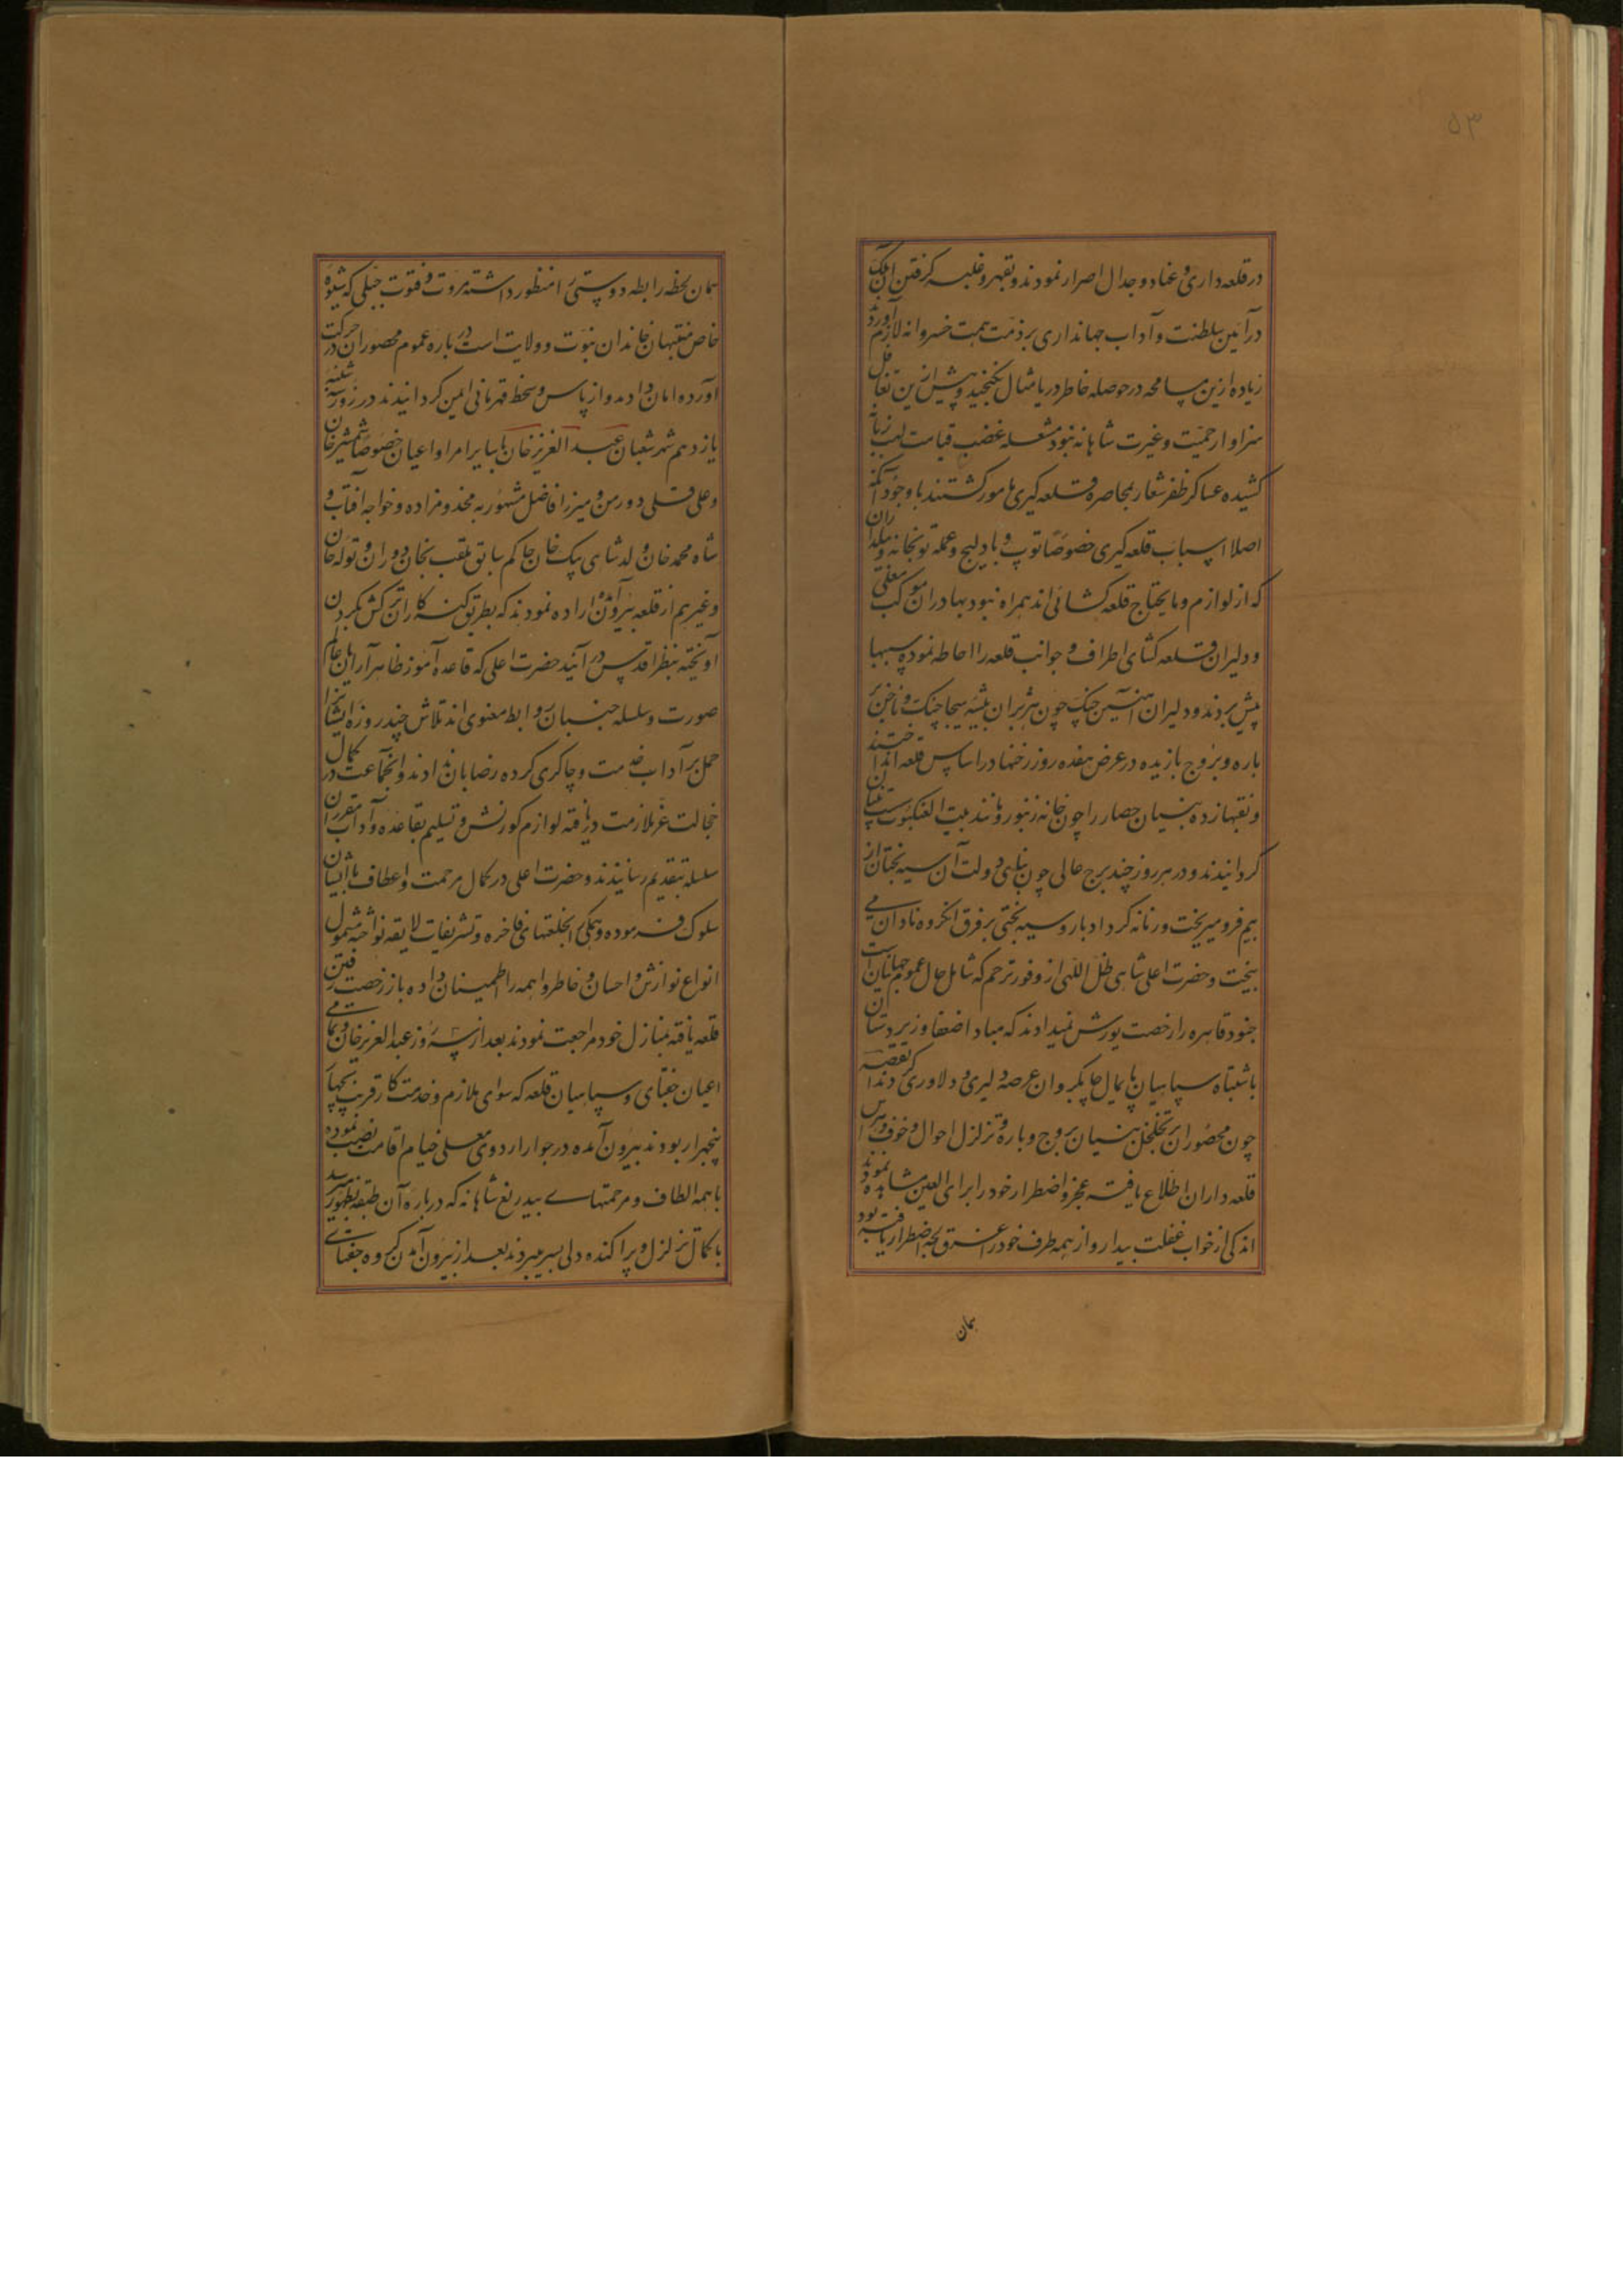 ۵۳
در قلعه داری و عناد و جدال اصرار نمودند و بقهر و غلبه گرفتن آن ملک
در آئین سلطنت و آداب جهانداری بر ذمت همت خسروانه لازم آورد
زیاده ازین مسامحه در حوصله خاطر دریا مثال نگنجید و بیش ازین تغافل
سزاوار حمیت و غیرت شاهانه نبود مشعله غضب قیامت لهب زبانه
کشیده عساکر ظفر شعار بمحاصره و قلعه گیری مامور گشتند با وجود آنکه
اصلا اسباب قلعه گیری خصوصا توپ و بادلیج و عمله توپخانه و بیلداران
که از لوازم و مایحتاج قلعه گشائی اند همراه نبود بهادران موکب معلی
و دلیران قلعه گشای اطراف و جوانب قلعه را احاطه نموده سیبها
پیش بردند و دلیران آهنین چنگ چون هژبران بیشه هیجا چنگ و ناخن بر
باره و بروج بازیده در عرض هفده روز رخنها در اساس قلعه انداختند
و نقبها زده بنیان حصار را چون خانه زنبور و مانند بیت العنکبوت سست بنیان
گردانیدند و در هر روز چند برج عالی چون بنای دولت آن سیه بختان از
هم فرو میریخت و زمانه گرد ادبار و سیه بختی بر فرق آن گروه نادان می
بیخت و حضرت اعلی شاهی ظل اللهی از وفور ترحم که شامل حال عموم جهانیان است
جنود قاهره را رخصت یورش نمیدادند که مبادا ضعفا و زیردستان
باشتباه سپاهیان پایمال چابکروان عرصه دلیری و دلاوری گردند القصه
چون محصوران بر تخلخل بنیان بروج و باره و تزلزل احوال و خوف و هراس
قلعه داران اطلاع یافته عجز و اضطرار خود را برای العین مشاهده نمودند
اندکی از خواب غفلت بیدار و از همه طرف خود را غرق لجه اضطرار یافته بود
همان
همان لحظه رابطه دوستی را منظور داشته مروت و فتوت جبلی که شیوه
خاص منتسبان خاندان نبوت و ولایت است در باره عموم محصوران در حرکت
آورده امان دادند و از باس و سخط قهرمانی ایمن گردانیدند در روز شنبه
یازدهم شهر شعبان عبد العزیز خان با سایر امرا و اعیان خصوصا شمشیر خان
و علی قلی دورمن و میرزا فاضل مشهور به مخدوم زاده و خواجه آفتاب و
شاه محمد خان ولد شاهی بیک خان حاکم سابق ملقب بخان دوران و تولک خان
و غیرهم از قلعه بیرون آمده اراده نمودند که بطریق گنه کاران ترکش بگردن
آویخته بنظر اقدس درآیند حضرت اعلی که قاعده آموز ظاهر آرایان عالم
صورت و سلسله جنبان روابط معنوی اند تلاش چند روزه ایشانرا
حمل بر آداب خدمت و چاکری کرده رضا بان ندادند و آنجماعت در کمال
خجالت عز ملازمت دریافته لوازم کورنش و تسلیم بقاعده و آداب مقرر آن
سلسله بتقدیم رسانیدند و حضرت اعلی در کمال مرحمت و اعطاف با ایشان
سلوک فرموده و همگی را بخلعتهای فاخره و تشریفات لایقه نواخته مشمول
انواع نوازش و احسان و خاطر واهمه را اطمینان داده باز رخصت رفتن
قلعه یافته بمنازل خود مراجعت نمودند بعد از سه روز عبد العزیز خان و تمامی
اعیان جغتای و سپاهیان قلعه که سوای ملازم و خدمتکار قریب بچهار
پنجهزار بودند بیرون آمده در جوار اردوی معلی خیام اقامت نصب نموده
با همه الطاف و مرحمتهای بیدریغ شاهانه که در باره آن طبقه بظهور میرسید
با کمال تزلزل و پراکنده دلی بسر میبردند بعد از بیرون آمدن گروه جغتای